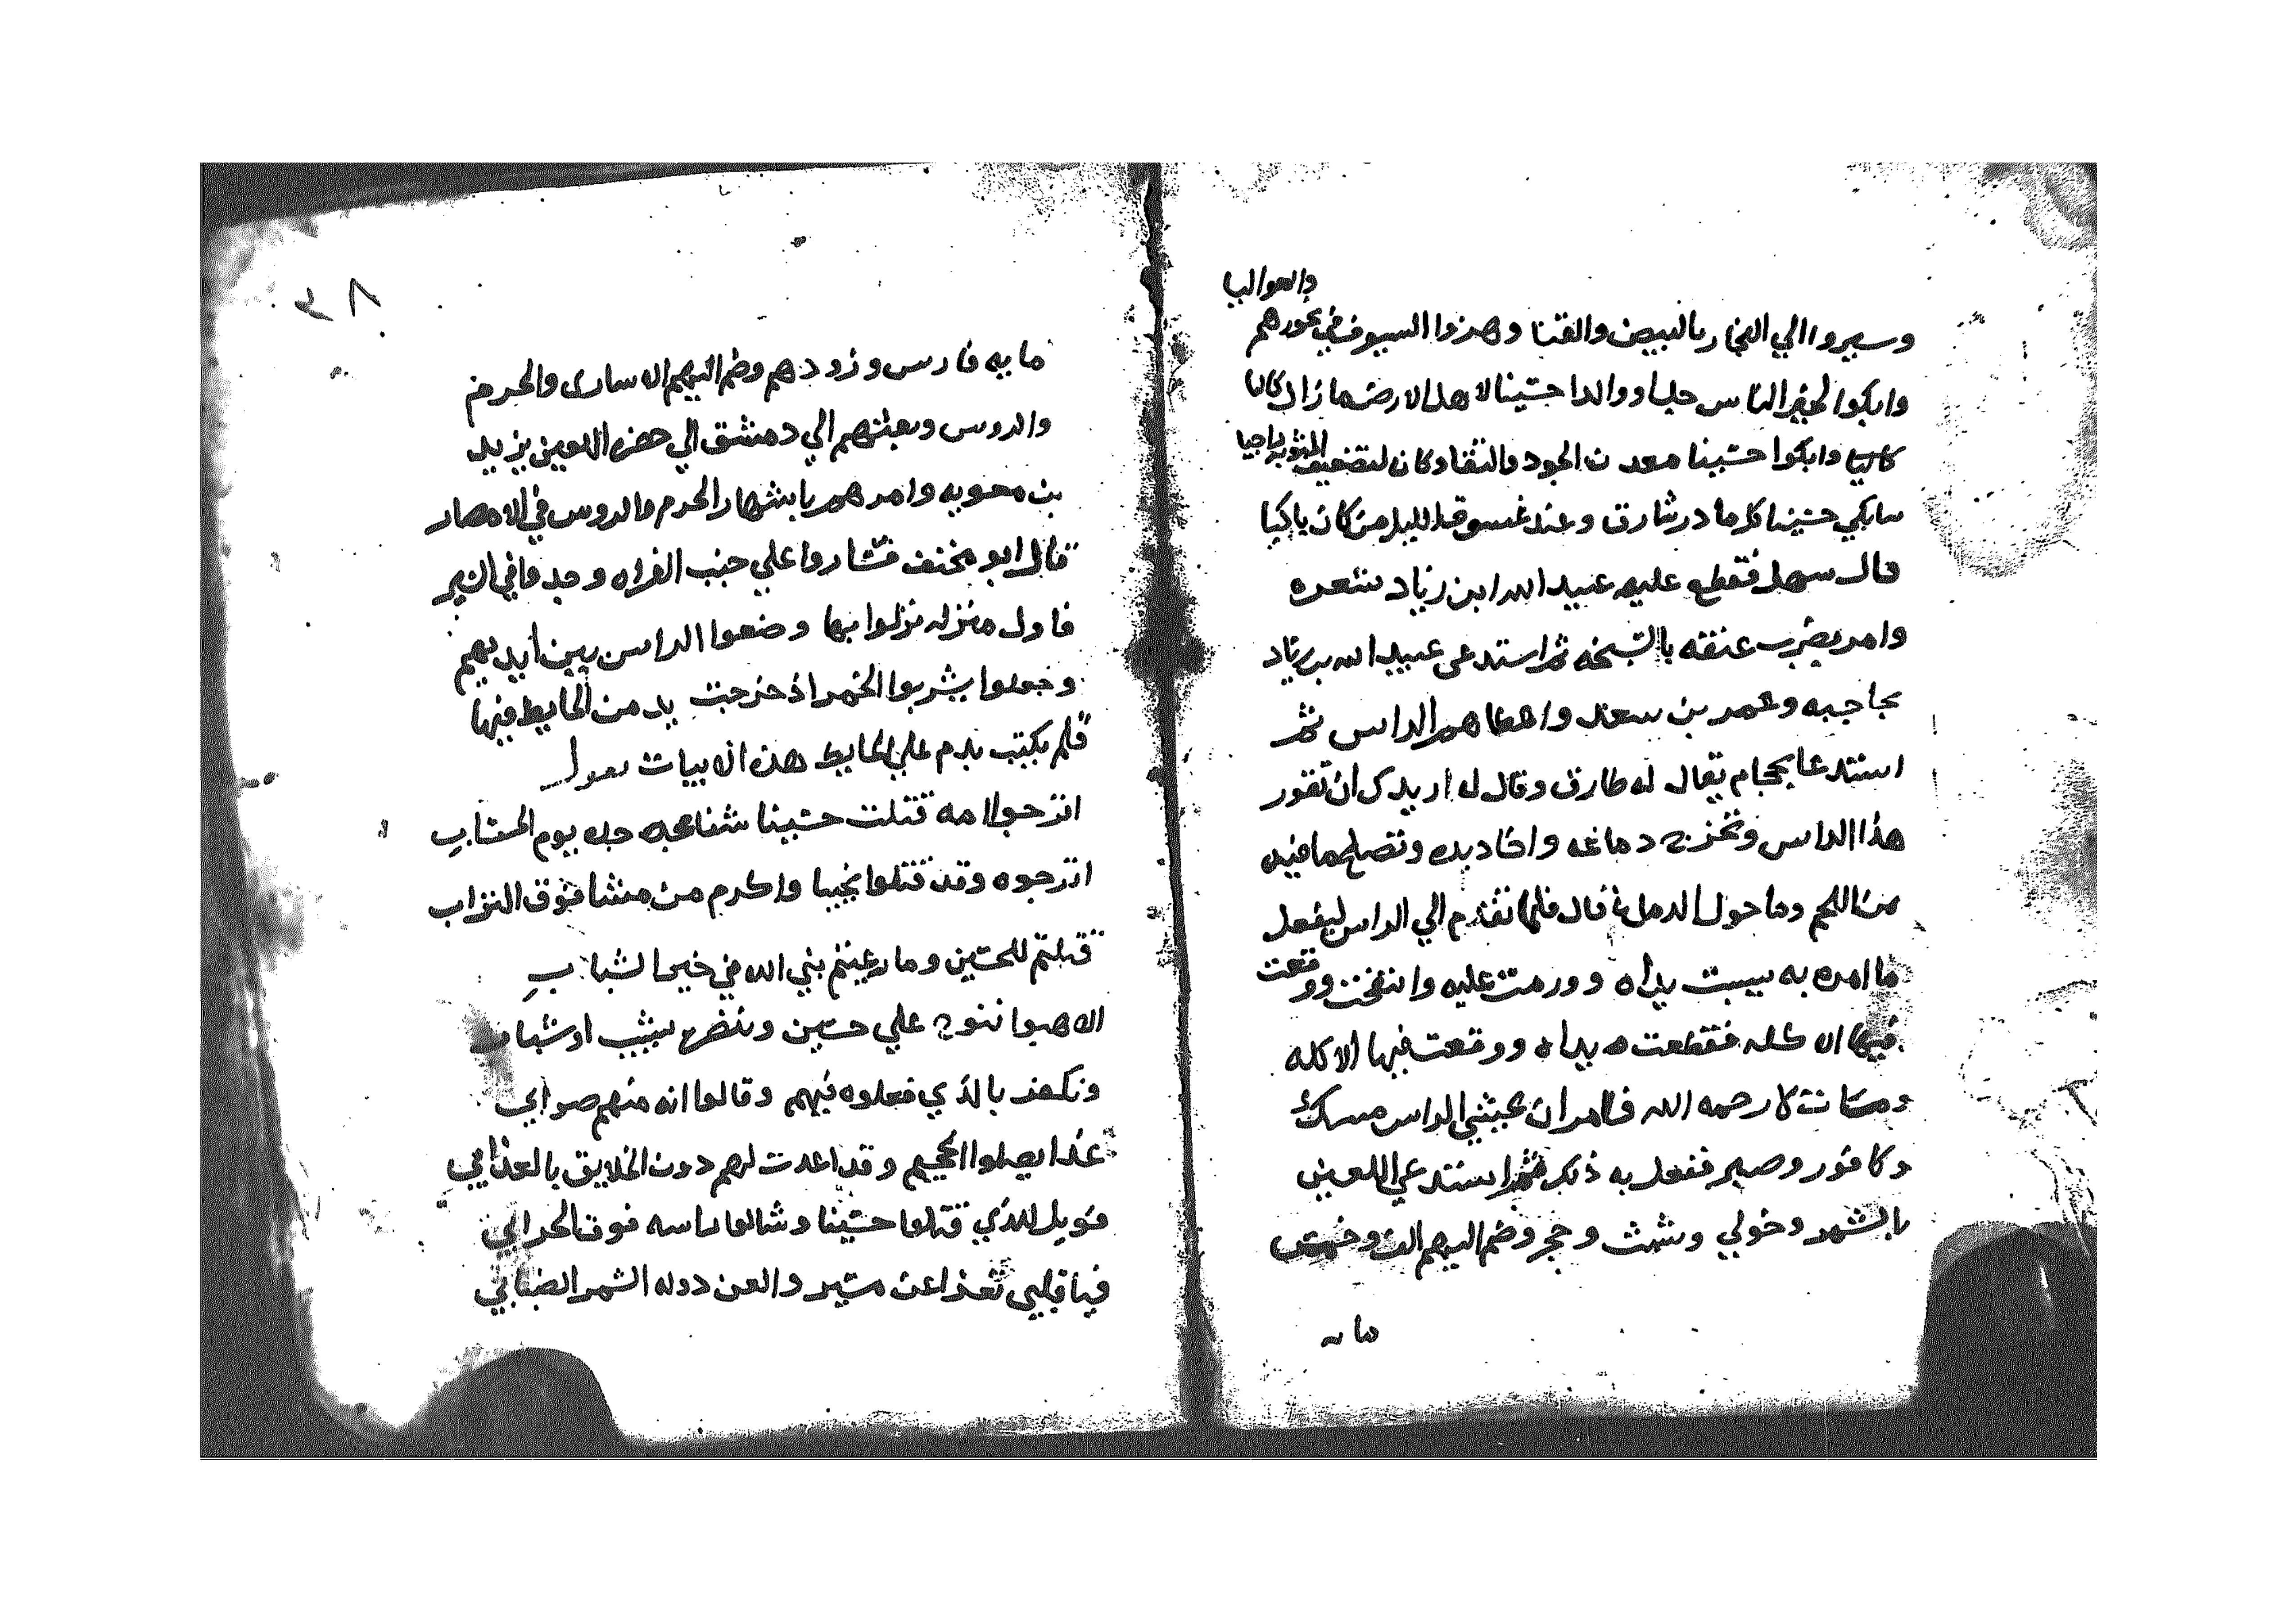 والعواليا
وسيروا الي الفجار بالبيض والقنا وهزوا السيوف في نحورهم
وابكوا لخير الناس حلما ووالدا حسينا لاهل الارض ما زال كانيا
وابكوا حسينا معدن الجود والتقا وكان لتضعيف المثوبه راجيا
سابكي حسينا كل ما در شارق وعند غسوق الليل من كان باكيا
قال سهل فقطع عليه عبيد الله ابن زياد شعره
وامر بضرب عنقه بالسبخه ثم استدعى عبيد الله بن زياد
بحاجبه وعمر بن سعد واعطاهم الراس ثم
استدعا بحجام يقال له طارق وقال له اريدك ان تقور
هذا الراس وتخرج دماغه واخاديده وتصلح ما فيه
من اللحم وما حول قال فلما تقدم الي الراس ليفعل
ما امره به يبست يداه وورمت عليه وانتفخت ووقعت
فيها الاكله فقطعت يداه ووقعت فيها الاكله
ومات لا رحمه الله فامر ان يحشي الراس مسك
وكافور وصبر ففعل به ذلك ثم استدعي اللعين
بالشمر وخولي وشبث وحجر وضم اليهم الف وخمس
مايه
٣٨
مايه فارس وزودهم وضم اليهم الاسارى والحرم
والروس وبعثهم الي دمشق الي حضره اللعين يزيد
بن معويه وامرهم باشهار الحرم والروس في الامصار
قال ابو مخنف فساروا علي جنب الفراه وجدوا في السير
فاول منزله نزلوا بها وضعوا الراس بين ايديهم
وجعلوا يشربوا الخمر اذ خرجت يد من الحايط فيها
قلم يكتب بدم علي الحايط هذه الابيات يقول
اترجوا امه قتلت حسينا شفاعه جده يوم الحساب
اترجوه وقد قتلوا نجيبا واكرم من مشا فوق التراب
قتلتم للحسين وما رعيتم بني الله في خير الشباب
الا هبوا ننوح علي حسين او شباب
ونكفر بالذي فعلوه فيهم وقالوا انه منهم صوابي
غدا يصلوا الجحيم وقد اعدت لهم دون الخلايق بالعذابي
فويل للذي قتلوا حسينا وشالوا راسه فوق الحرابي
فيا قلبي والعن دوله الشمر الضبابي